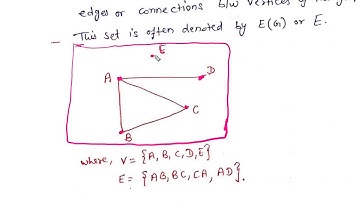 edges or connections b/w vertices of
This set is often denoted by E(G) or E.
E
A
D
C
B
where, V = {A, B, C, D, E}
E = {AB, BC, CA, AD}.